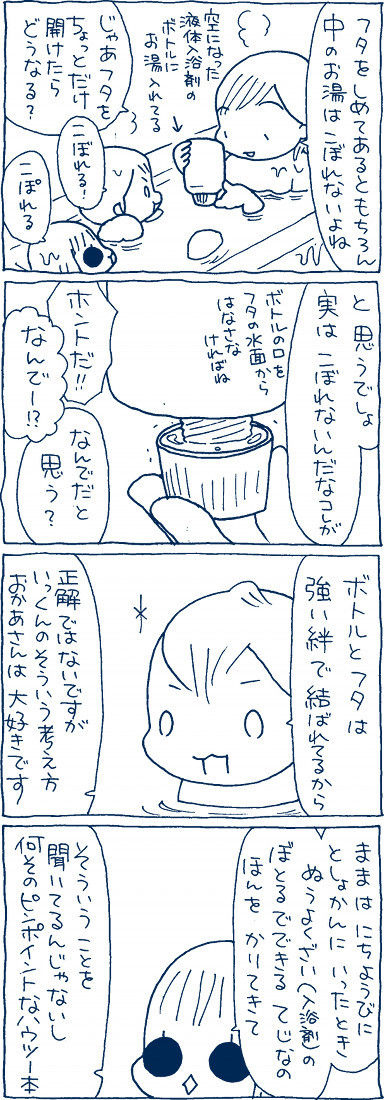 フタをしめてあるともちろん
中のお湯はこぼれないよね
空になった
液体入浴剤の
ボトルに
お湯入れてる
じゃあフタを
ちょっとだけ
開けたら
どうなる?
こぼれる!
こぼれる
と思うでしょ
実はこぼれないんだなコレが
ボトルの口を
フタの水面から
はなさな
ければね
ホントだ!!
なんでー!?
なんでだと
思う?
ボトルとフタは
強い絆で結ばれてるから
正解ではないですが
いっくんのそういう考え方
おかあさんは大好きです
ままはにちようびに
としょかんにいったとき
ぬうよくざい(入浴剤)の
ぼとるでできるてじなの
ほんをかりてきて
そういうことを
聞いてるんじゃないし
何そのピンポイントなハウツー本